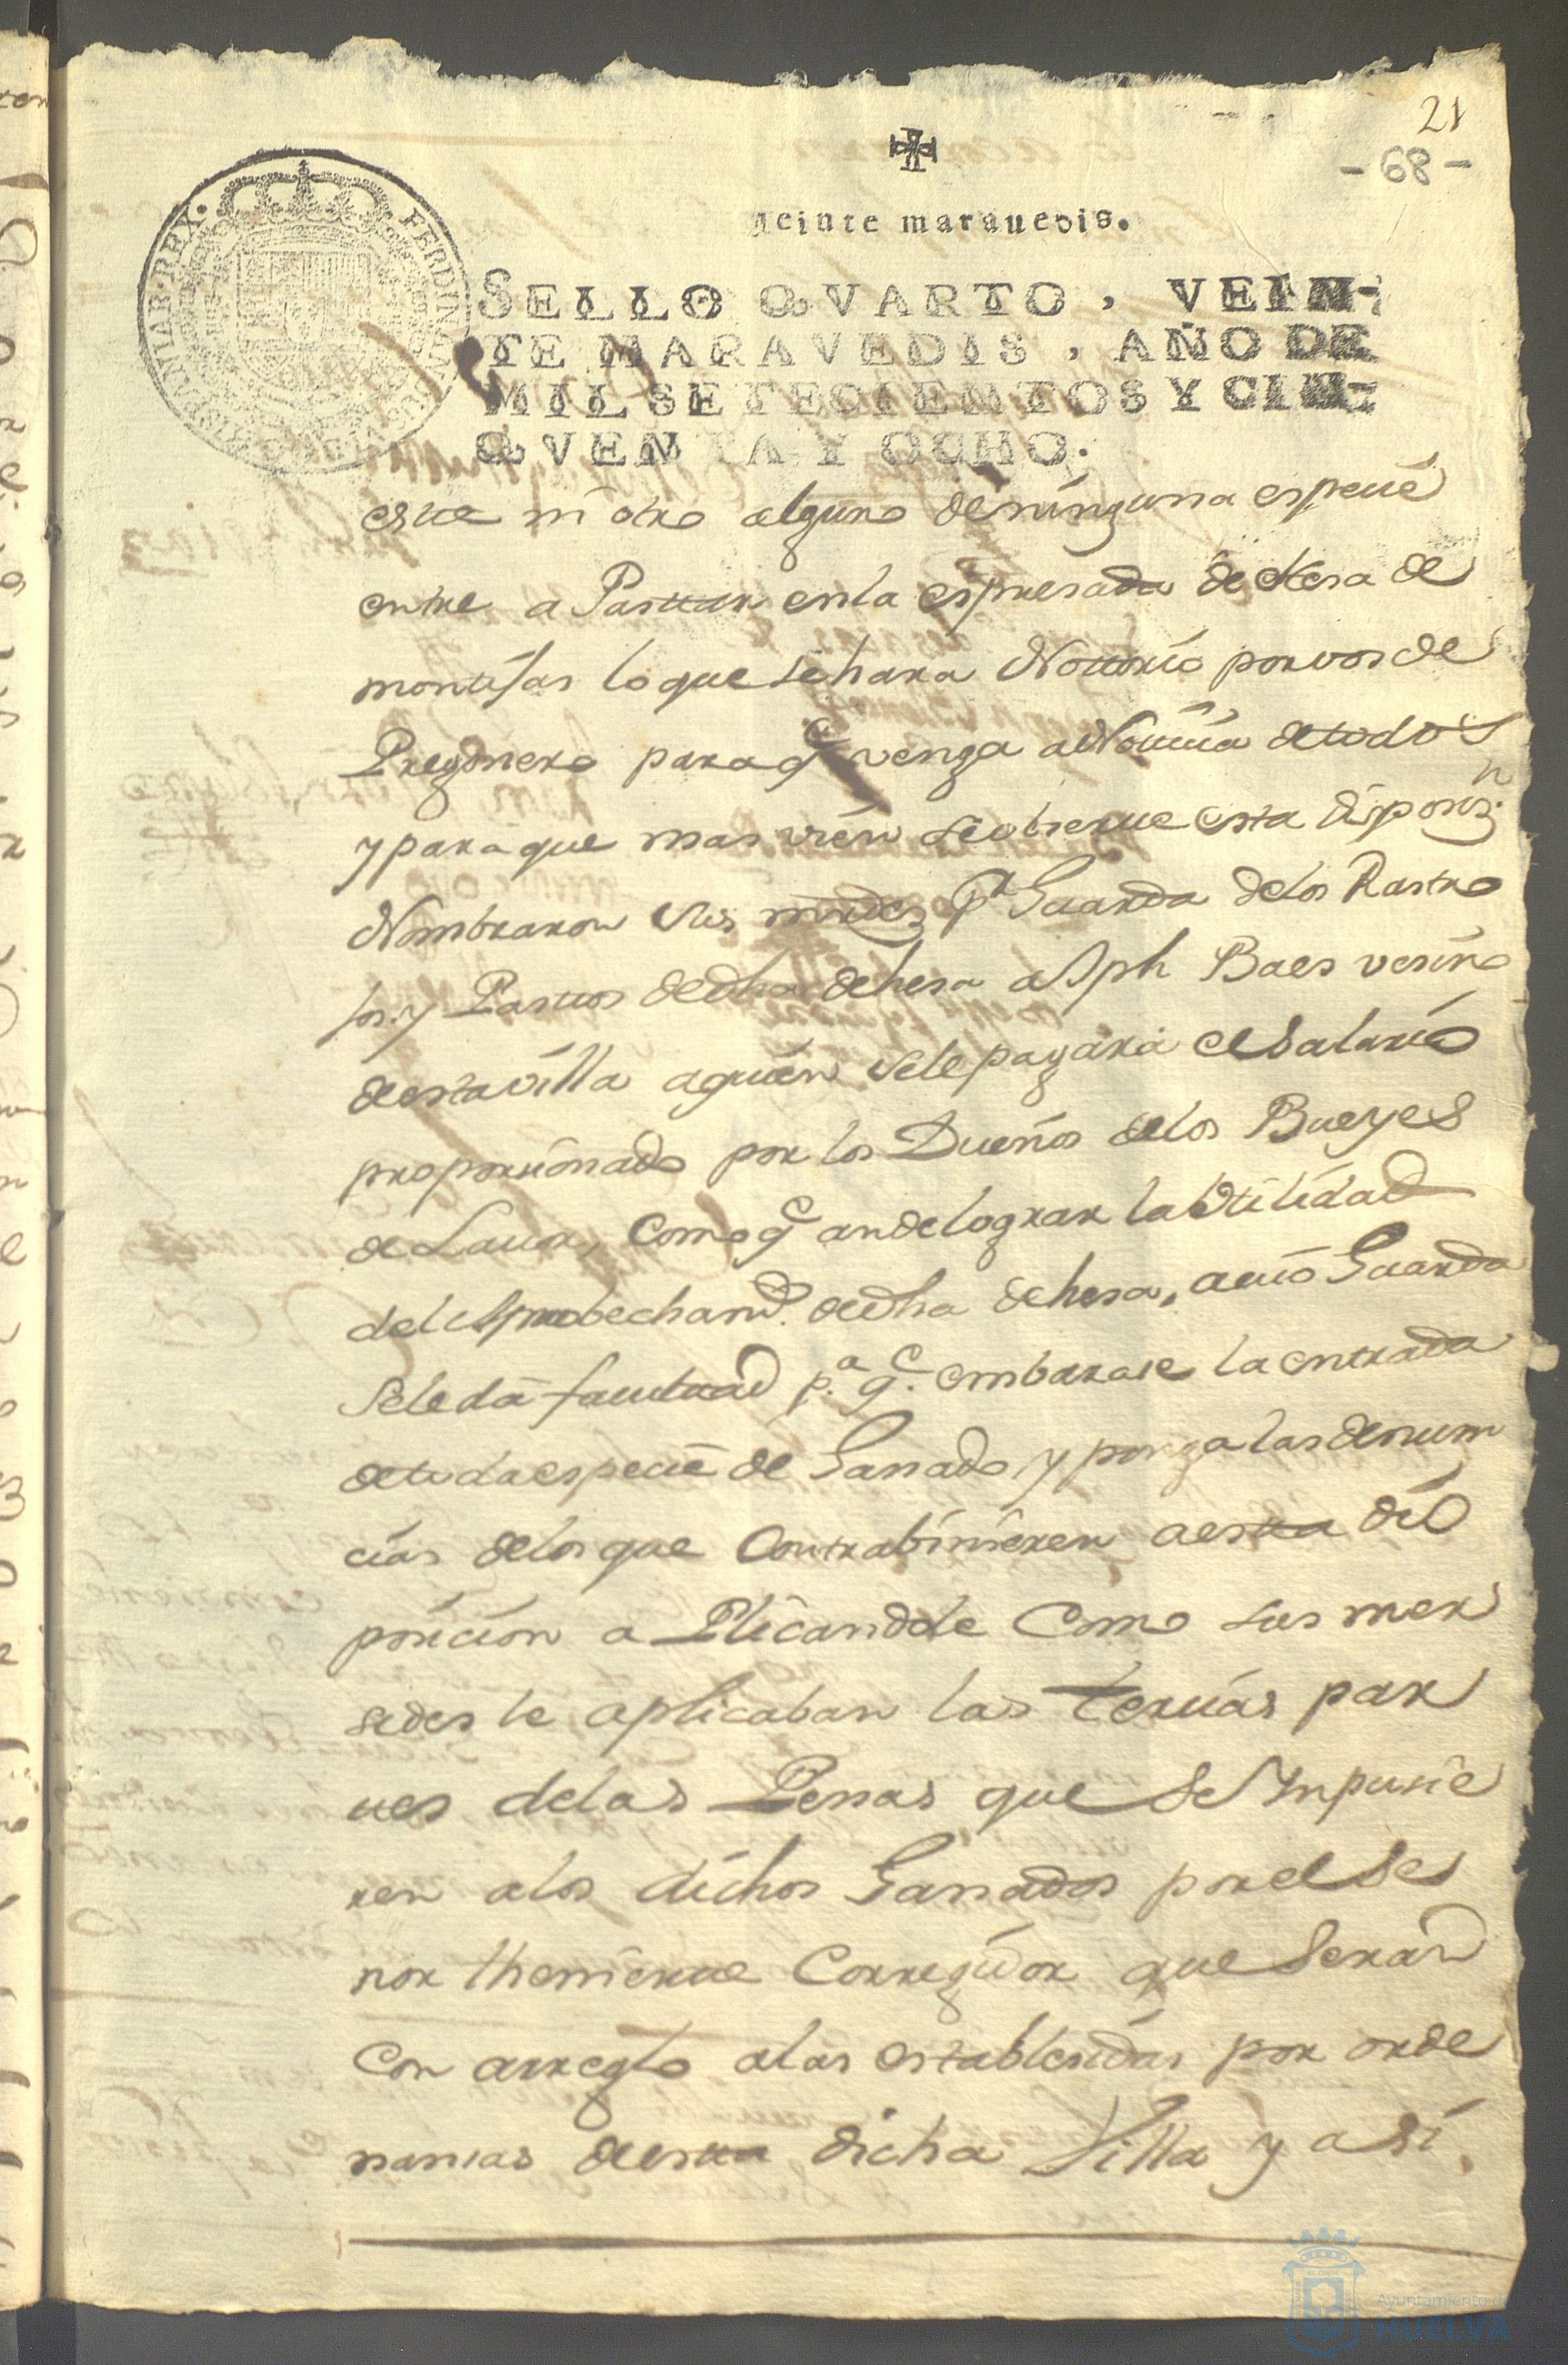 21
- 68 -
Veinte maravedis.
HISPANIAR. REX. FERDINANDUS
SELLO QVARTO, VEIN-
TE MARAVEDIS, AÑO DE
MIL SETECIENTOS Y CIN-
QVENTA Y OCHO.
este ni otro alguno deninguna especie
entre a Pastar enla espresada dehesa de
montijas lo que se hara Nottorio porvos de
Pregonero para q^e venga aNotticia detodos
y para que mas vien seobserve esta disposiz.^n
Nombraron sus mrdes p^a Guarda delos Rastro
jos y Pastos dedha dehesa a Jph Baes vesino
destavilla aquien sele pagará elsalario
proporcionado por los Dueños delos Bueyes
de Lavor, como q^e andelograr laVtilidad
del Aprobecham.^to dedha dehesa, acuio Guarda
Seledá facultad p.^a q.^e embarase la entrada
detodaespecie de Ganado y ponga lasdenun
cias delosque Contrabinieren aesta dis
posicion aPlicandole Como sus mer
sedes le aplicaban las tercias par
tes delas Penas que se Ympusie
ren alos dichos Ganados por el Se
ñor theniente Corregidor que Seran
con arreglo alas establesidas por orde
nansas desta dicha Villa y asi
Ayuntamiento de
HUELVA